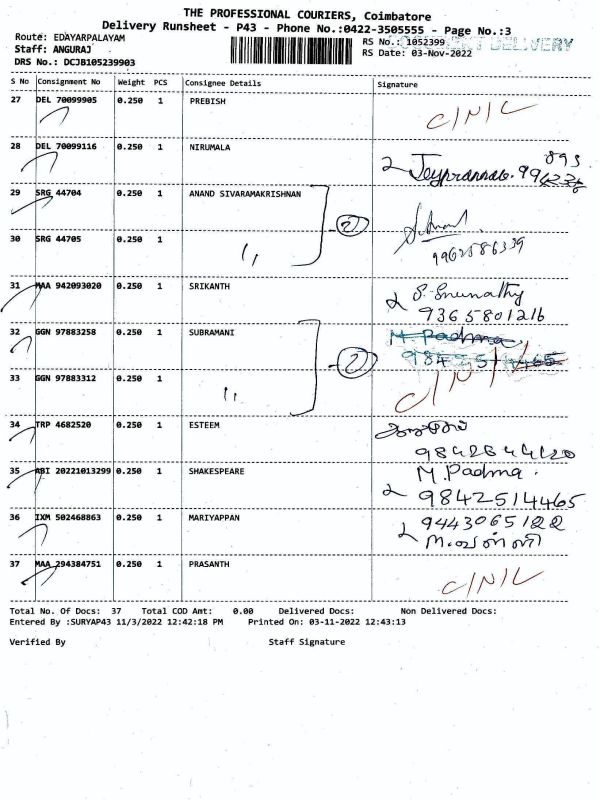 THE PROFESSIONAL COURIERS, Coimbatore
Delivery Runsheet - P43 - Phone No.:0422-3505555 - Page No.:3
Route: EDAYARPALAYAM
RS No.: 1052399
DELIVERY
Staff: ANGURAJ
RS Date: 03-Nov-2022
DRS No.: DCJB105239903
S No Consignment No Weight PCS Consignee Details Signature
27 DEL 70099905 0.250 1 PREBISH C/N/C
28 DEL 70099116 0.250 1 NIRUMALA
29 SRG 44704 0.250 1 ANAND SIVARAMAKRISHNAN
2
30 SRG 44705 0.250 1 〃 9962586339
31 MAA 942093020 0.250 1 SRIKANTH
9365801216
32 GGN 97883258 0.250 1 SUBRAMANI M. Padma
2
33 GGN 97883312 0.250 1 〃 C/N/C
34 TRP 4682520 0.250 1 ESTEEM
9842644120
35 ABI 20221013299 0.250 1 SHAKESPEARE M. Padma.
9842514465
36 IXM 502468863 0.250 1 MARIYAPPAN 9443065122
37 MAA 294384751 0.250 1 PRASANTH C/N/C
Total No. Of Docs: 37 Total COD Amt: 0.00 Delivered Docs: Non Delivered Docs:
Entered By :SURYAP43 11/3/2022 12:42:18 PM Printed On: 03-11-2022 12:43:13
Verified By Staff Signature